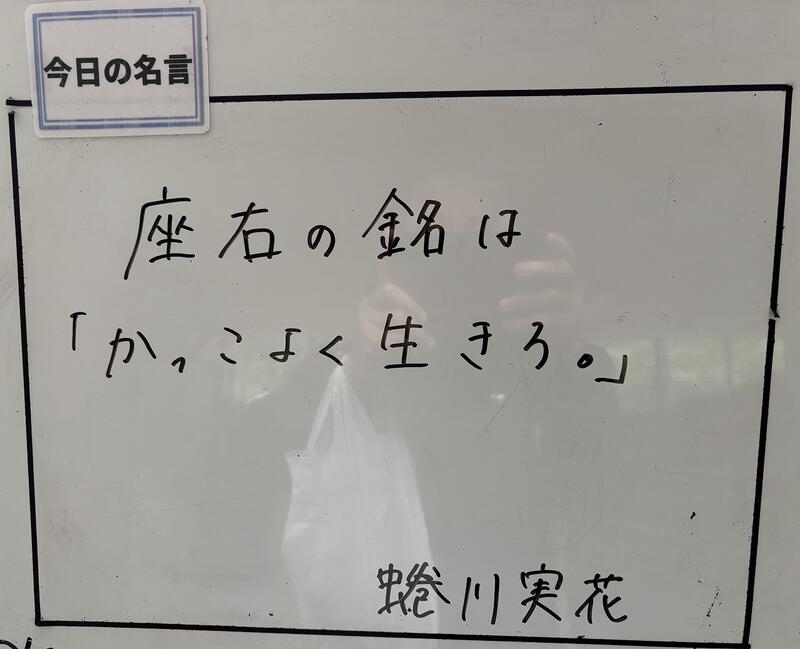 今日の名言
座右の銘は
「かっこよく生きろ。」
蜷川実花